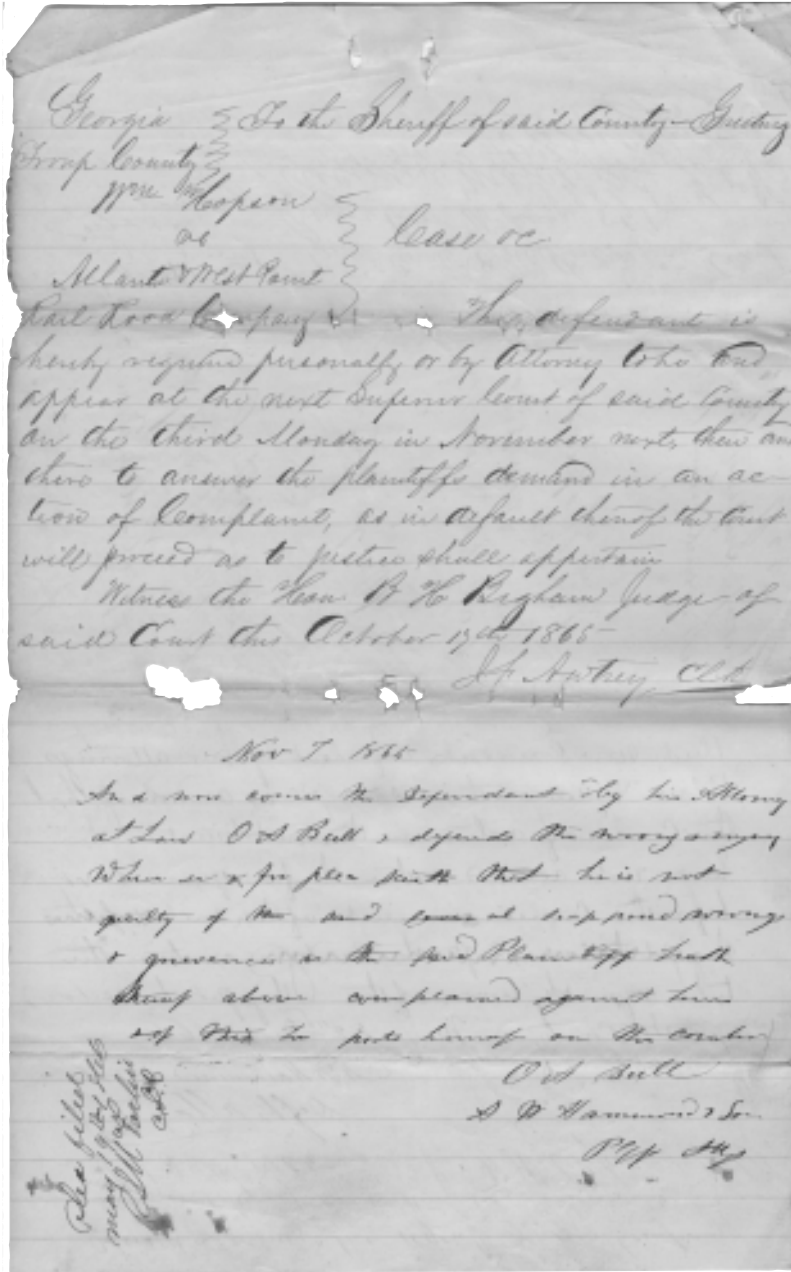 Georgia } To the Sheriff of said County - Greeting
Troup County
Wm Hopson
vs } Case &c
Atlanta & West Point
Rail Road Company The defendant is
hereby required personally or by Attorney to be and
appear at the next Superior Court of said County
on the third Monday in November next, then and
there to answer the plaintiffs demand in an ac-
tion of Complaint, as in default thereof the Court
will proceed as to justice shall appertain
Witness the Hon B H Bigham Judge of
said Court this October 19th 1865
J F Awtrey Clk
Nov T. 1865
And now comes the Defendant by his Attorney
at Law O A Bull & defends the wrong
When &c & for plea saith that he is not
guilty of the said supposed wrongs
& grievances as the said Plaintiff hath
above complained against him
& of this he puts himself on the country
O A Bull
S W Hammond & Son
Plff Atty
Plea filed
May